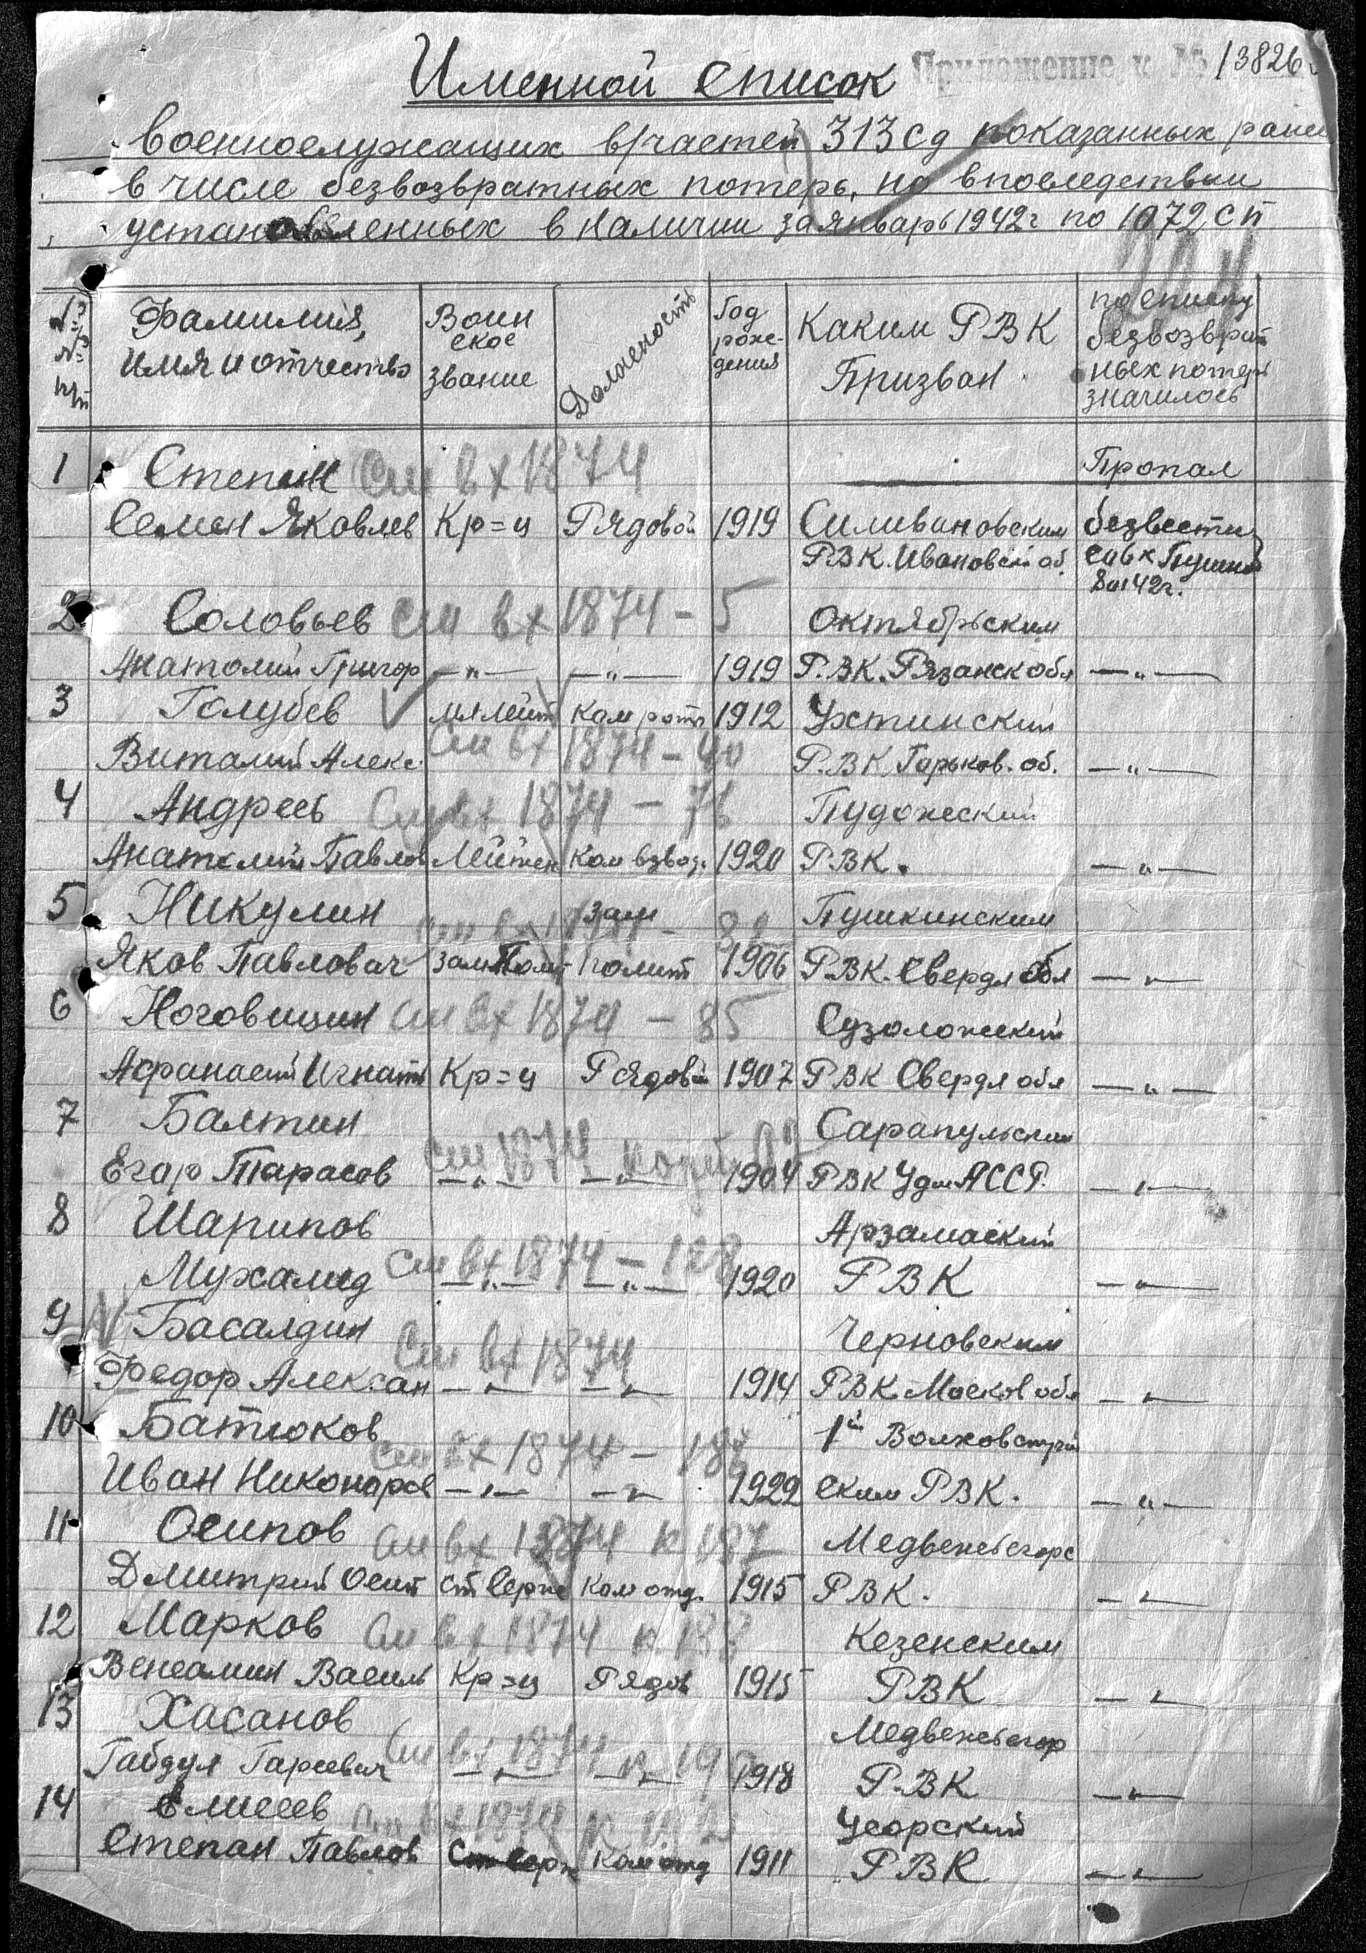 Приложение к № 13826
Именной список
военнослужащих в/частей 313 сд показанных ранее
в числе безвозвратных потерь, но впоследствии
установленных в наличии за январь 1942г по 1072 СП
№№ п/п
Фамилия, имя и отчество
Воинское звание
Должность
Год рождения
Каким РВК Призван
по списку безвозвратных потерь значилось
1 Степин См вх 1874 Пропал
Семен Яковлев Кр=ц Рядовой 1919 Силивановским безвести
РВК. Ивановской об.
8.01.42г.
2 Соловьев См вх 1874 - 5 Октябрьским
Анатолий Григор —"— —"— 1919 Р.ВК. Рязанск обл —"—
3 Голубев мл лейт Ком роты 1912 Ухтинский
Виталий Алекс. См вх 1874 - 40 Р.ВК. Горьков. об. —"—
4 Андреев См вх 1874 - 76 Пудожский
Анатолий Павлов Лейтен Ком взвод. 1920 РВК. —"—
5 Никулин зам Пушкинским
Яков Павлович зам Полит полит 1906 РВК. Свердл обл —"—
6 Ноговицин См вх 1874 - 85 Сузоложский
Афанасий Игнат Кр=ц Рядовой 1907 РВК Свердл обл —"—
7 Балтин Сарапульским
См 1874
Егор Тарасов —"— —"— 1904 РВК Удм АССР. —"—
8 Шарипов Арзамаский
См вх 1874 - 128
Мухамид —"— —"— 1920 РВК —"—
9 Басалдин Черновским
См вх 1874
Федор Алексан —"— —"— 1914 РВК Москов обл —"—
10 Батюков 1й Волховстрой
См вх 1874 -
Иван Никоноров —"— —"— 1922 ским РВК. —"—
11 Осипов См вх 1874 п 187 Медвежьегорс
Дмитрий Осип ст Серж Ком отд. 1915 РВК. —"—
12 Марков См вх 1874 п Кезенским
Вениамин Василь Кр=ц Рядов 1915 РВК —"—
13 Хасанов Медвежьегор
См вх 1874 п
Габдул Гареевич —"— —"— 1918 РВК —"—
14 Елисеев См вх 1874 п Усорский
Степан Павлов Ст Серж Ком отд 1911 РВК —"—